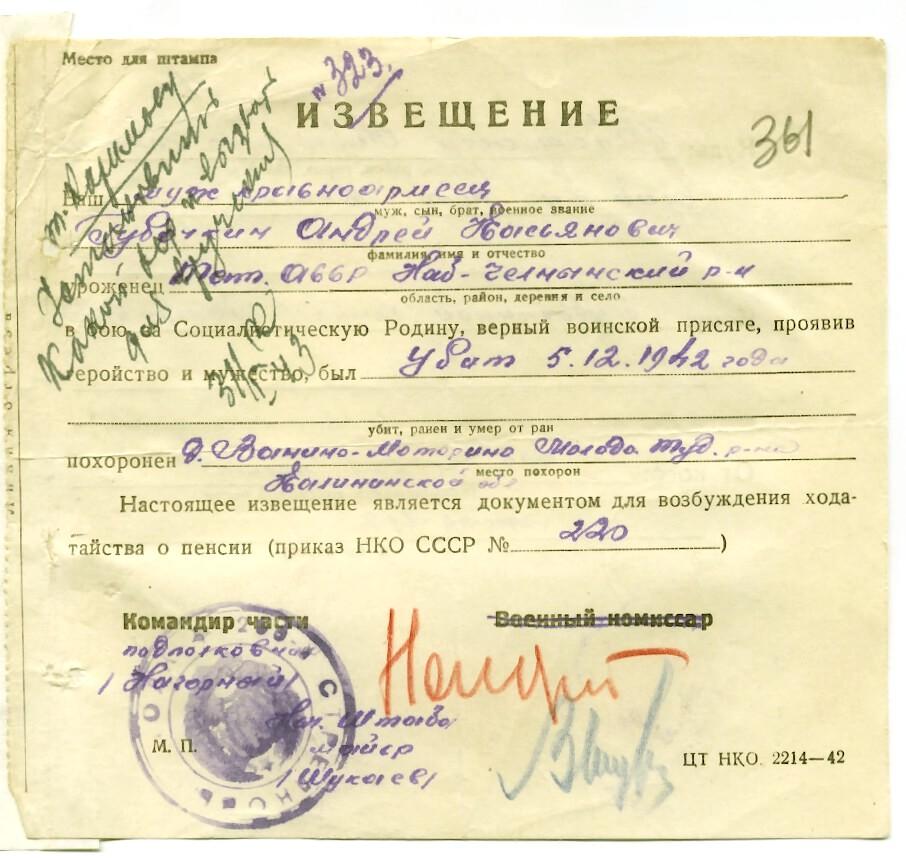 Место для штампа
№ 323.
ИЗВЕЩЕНИЕ
361
т.
Установить
какой
для вручения
Ваш муж красноармеец
муж, сын, брат, военное звание
Губочкин Андрей Касьянович
фамилия, имя и отчество
уроженец Тат. АССР Наб-Челнынский р-н
область, район, деревня и село
в бою за Социалистическую Родину, верный воинской присяге, проявив
геройство и мужество, был убит 5.12.1942 года
убит, ранен и умер от ран
похоронен д. Ванино-Моторино Молодо Туд. р-на
место похорон
Калининской обл
Настоящее извещение является документом для возбуждения хода-
тайства о пенсии (приказ НКО СССР № 220 )
Командир части
Военный комиссар
подполковник
/Нагорный/
Нач. Штаба
М. П.
майор
/Шукаев/
ЦТ НКО. 2214—42